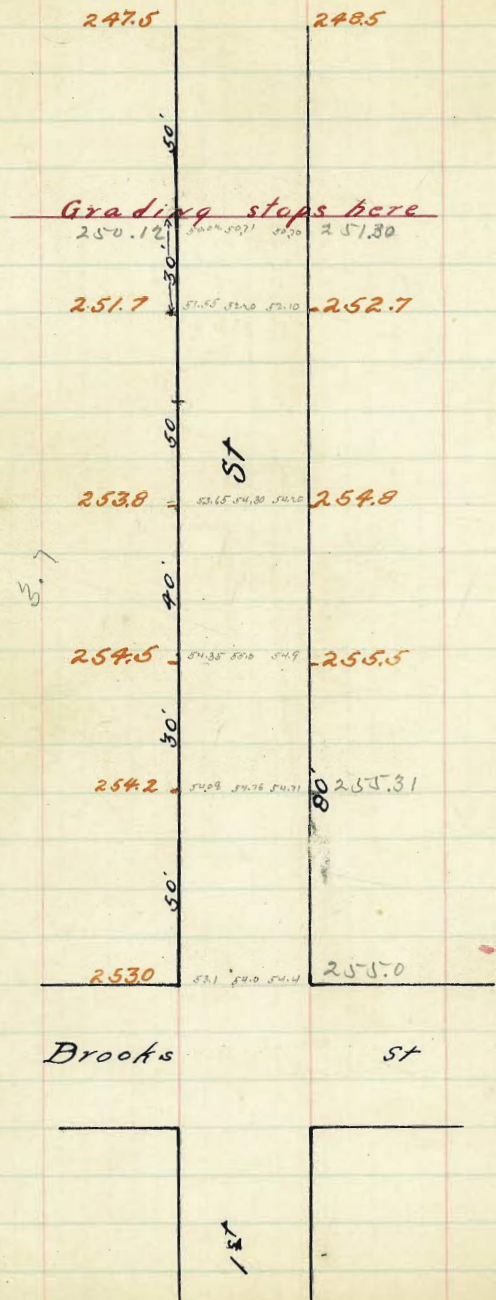 247.5 248.5
50'
Grading stops here
250.12 50.71 50.70 251.30
30'
251.7 51.55 52.20 52.10 252.7
50
St
253.8 53.65 54.30 54.20 254.8
40'
254.5 54.35 55.0 54.9 255.5
30'
254.2 54.08 54.76 54.71 80' 255.31
50'
253.0 53.1 54.0 54.4 255.0
Brooks St
1st